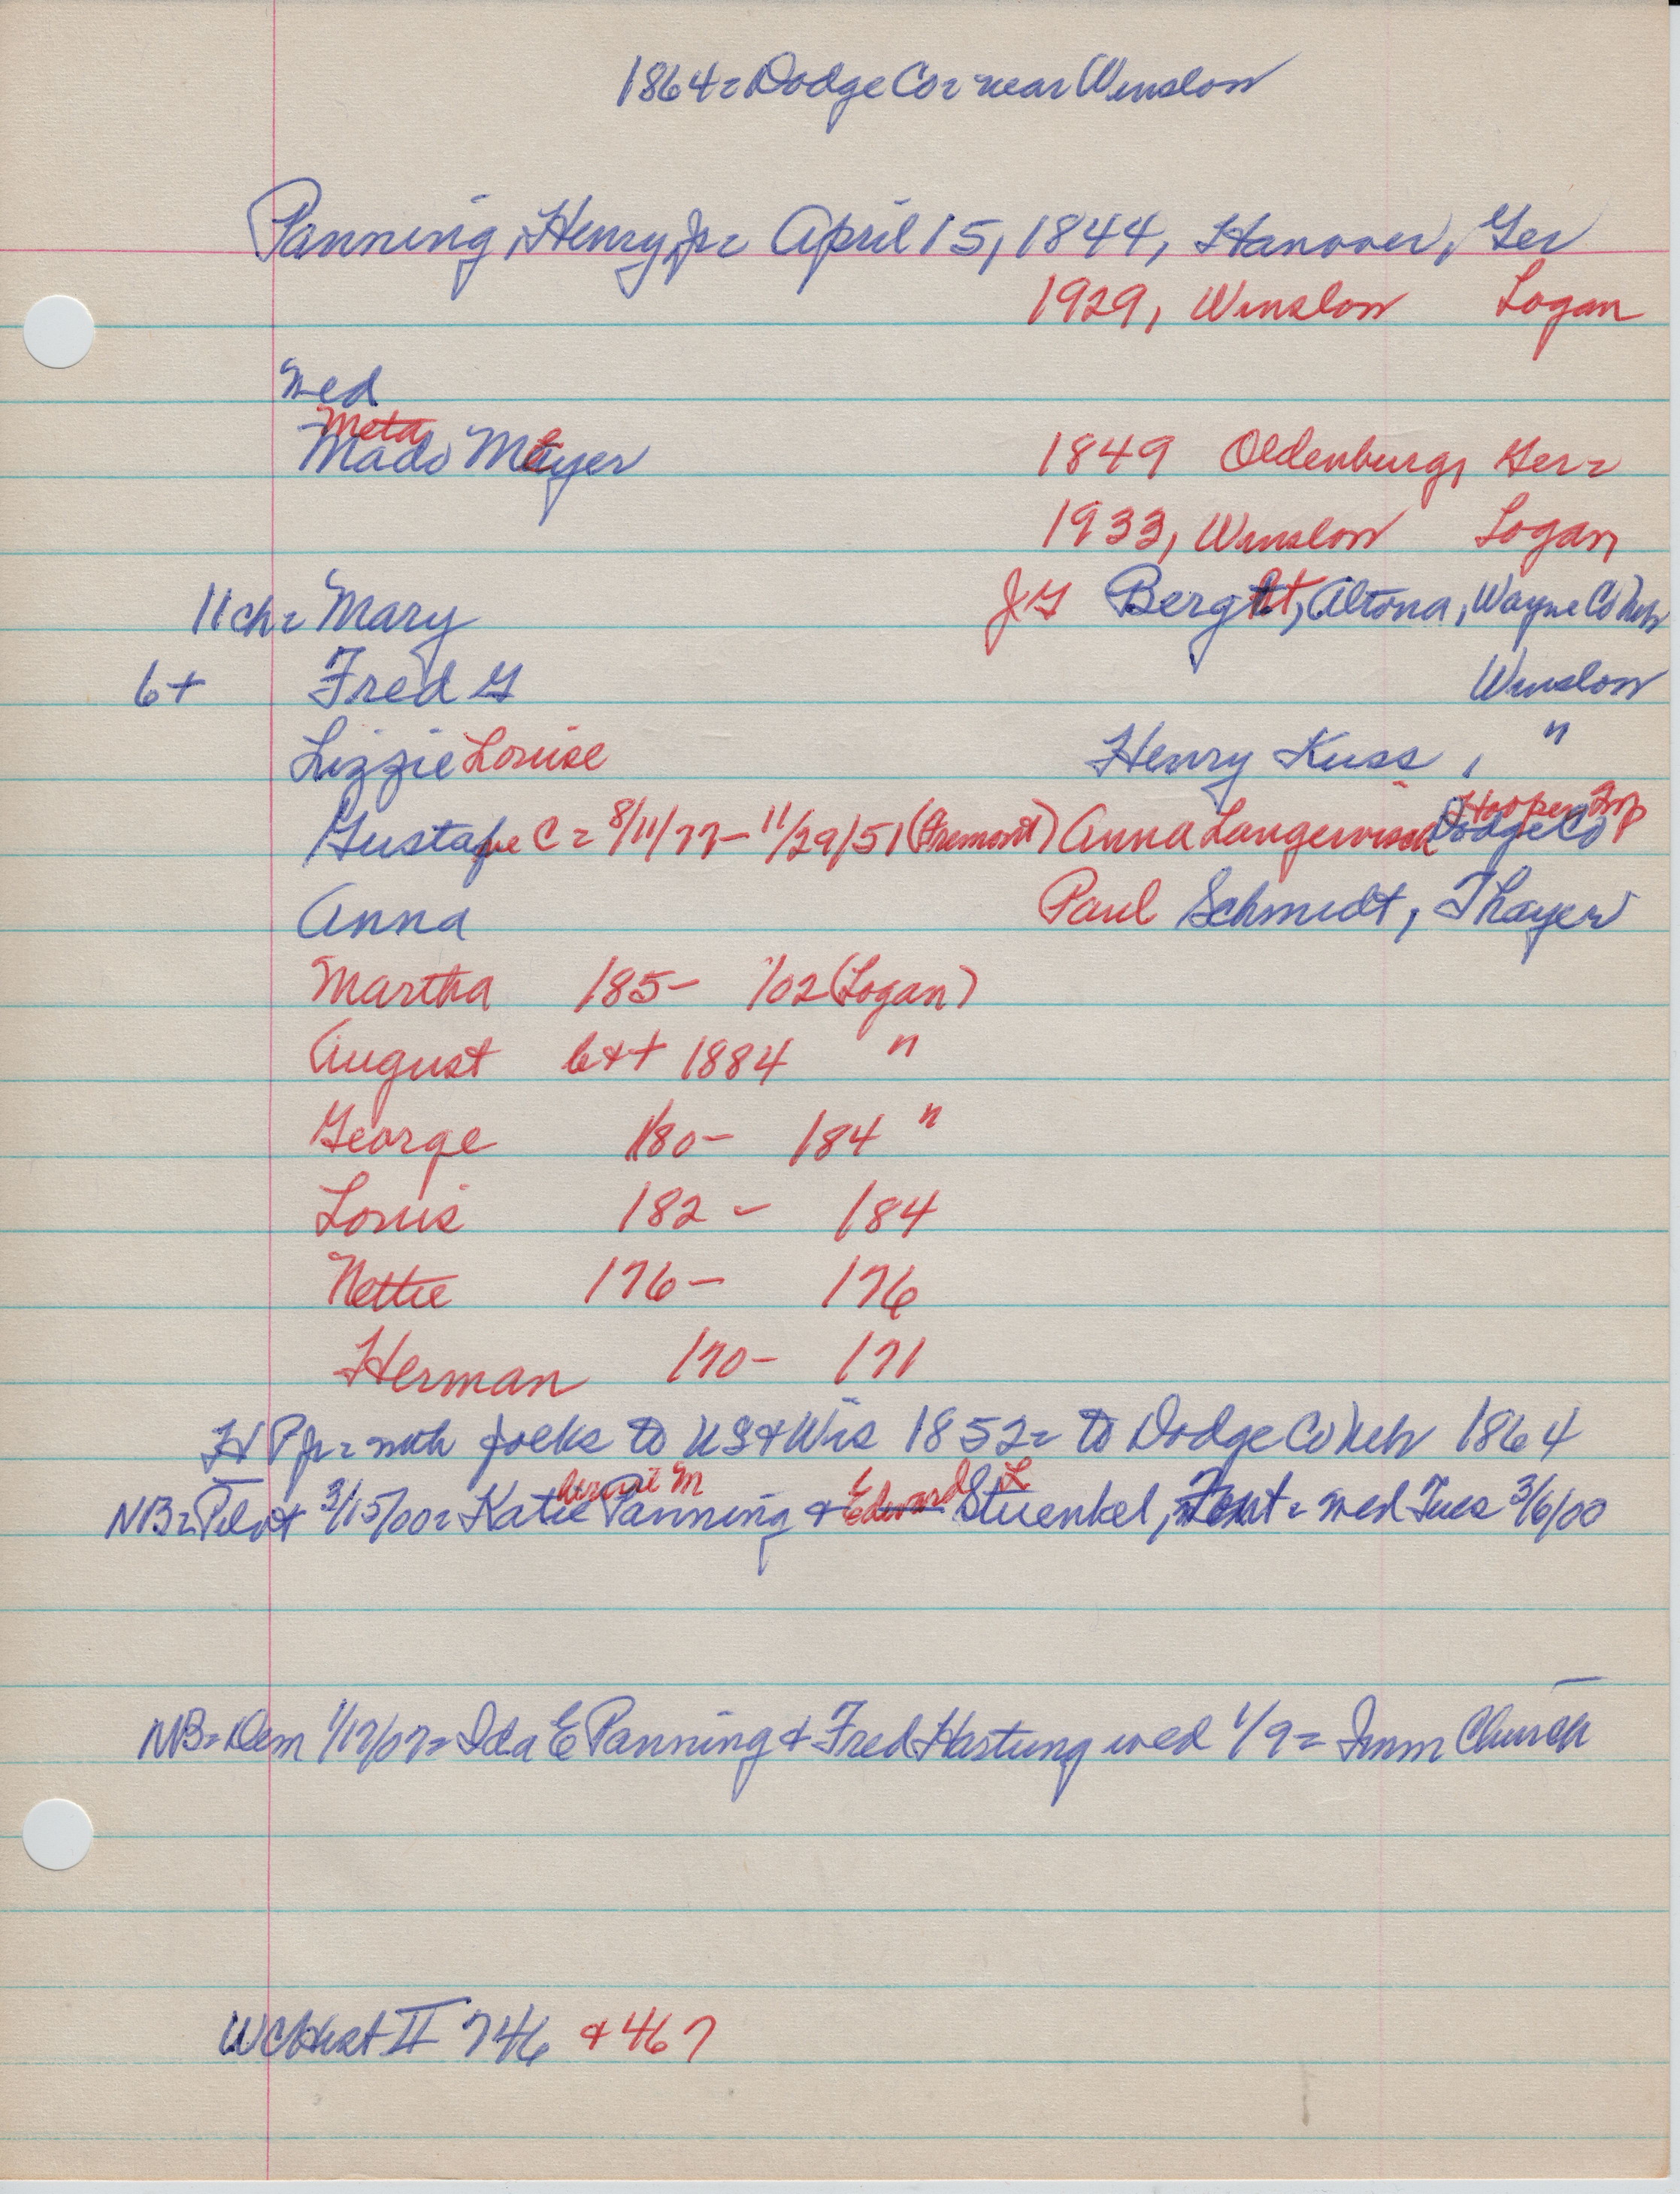 1864 = Dodge Co = near Winslow
Panning, Henry, Jr = April 15, 1844, Hanover, Ger
1929, Winslow Logan
wed
Meta
Mado Meyer 1849 Oldenburg, Ger =
1933, Winslow Logan
11 ch = Mary JG Bergt, Altona, Wayne Co Neb
6+ Fred G Winslow
Lizzie Louise Henry Kuss, "
Hooper Twp
Gustave C = 8/11/77 - 11/29/51 (Fremont) Anna Langewisch Dodge Co
Anna Paul Schmidt, Thayer
Martha 185 - 102 (Logan)
August b++ 1884 "
George 180 - 184 "
Louis 182 - 184
Nettie 176 - 176
Herman 170 - 171
H P Jr = with folks to US & Wis 1852 = to Dodge Co Neb 1864
M E L
NB = Pilot 3/15/00 = Katie Panning & Edward Stuenkel, = wed Tues 3/6/00
NB = Dem 1/17/07 = Ida E Panning & Fred Hastung wed 1/9 = Imm Church
WCHist II 746 & 467